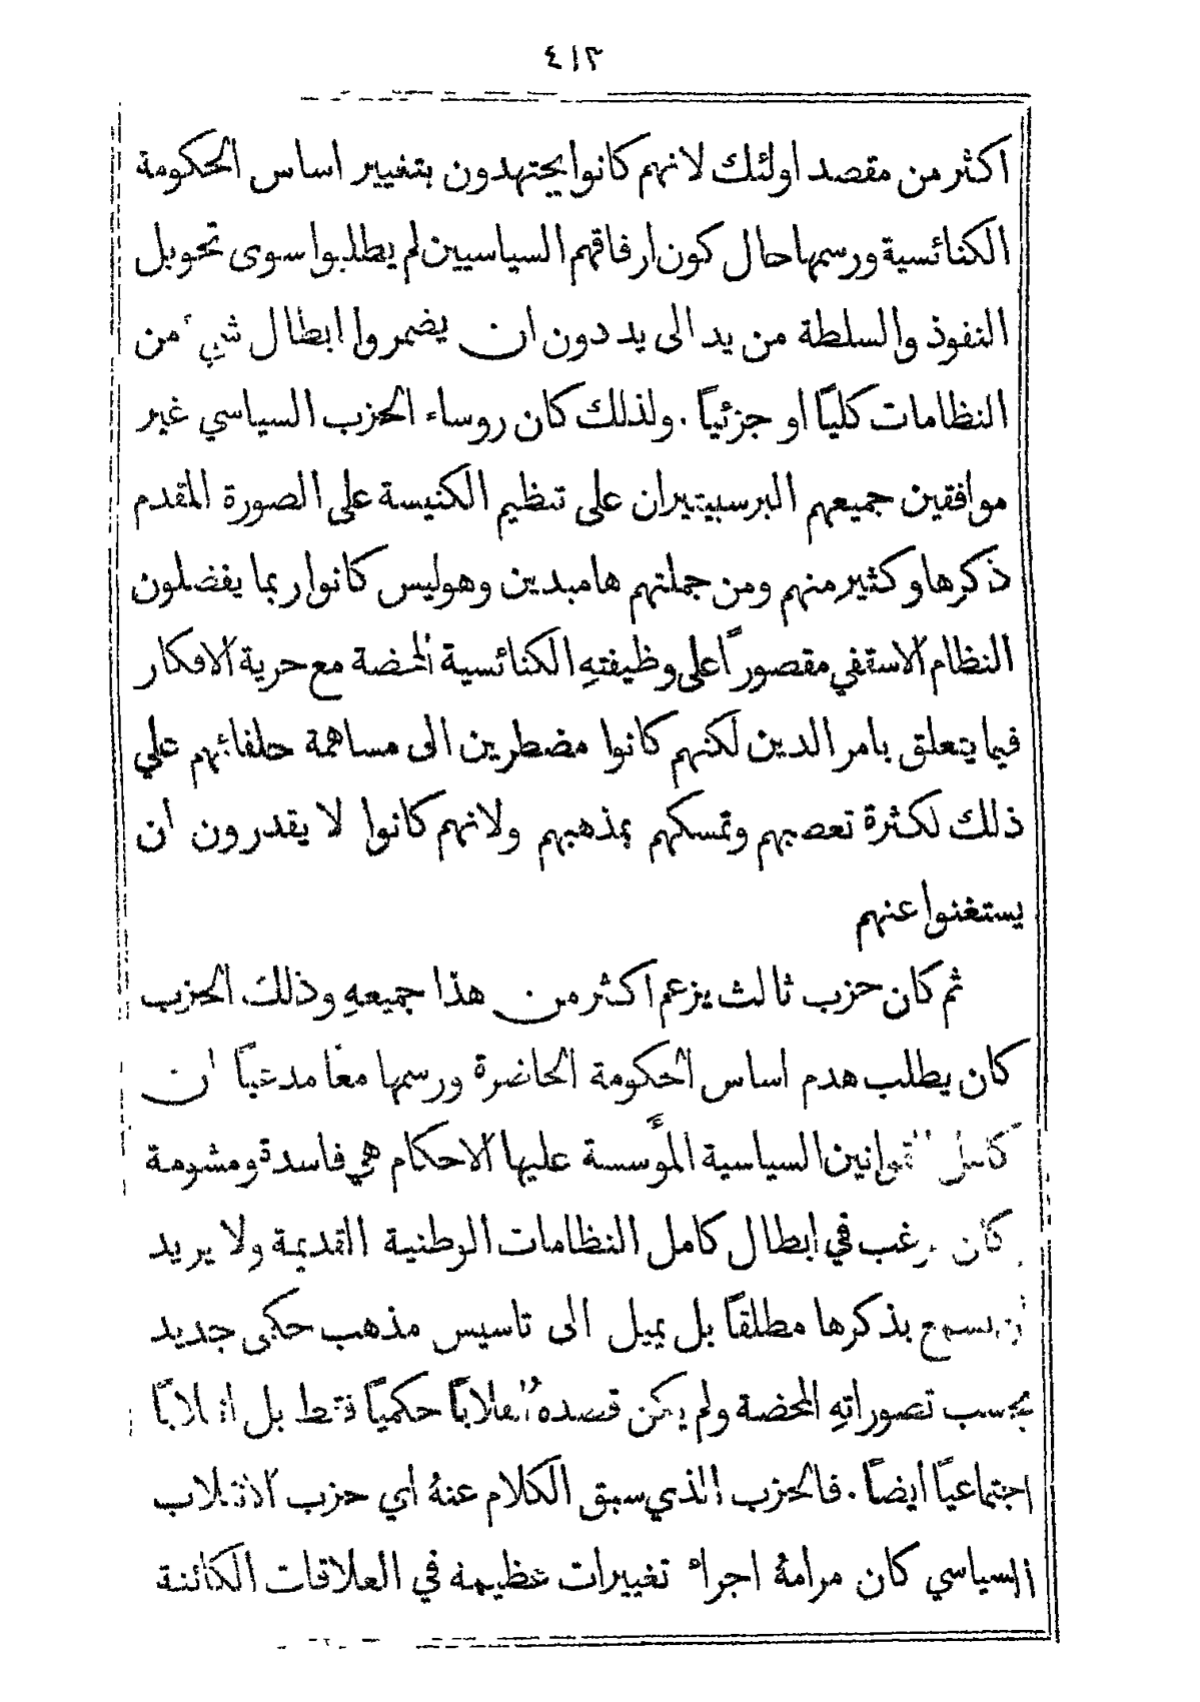 ٤١٣
اكثر من مقصد اولئك لانهم كانوا يجتهدون بتغيير اساس الحكومة
الكنائسية ورسمها حال كون ارفاقهم السياسيين لم يطلبوا سوى تحويل
النفوذ والسلطة من يد الى يد دون ان يضمروا ابطال شيء من
النظامات كليًا او جزئيًا . ولذلك كان روساء الحزب السياسي غير
موافقين جميعهم البرسبيتيران على تنظيم الكنيسة على الصورة المقدم
ذكرها وكثير منهم ومن جملتهم هامبدين وهوليس كانوا ربما يفضلون
النظام الاسقفي مقصورًا على وظيفتهِ الكنائسية المحضة مع حرية الافكار
فيما يتعلق بامر الدين لكنهم كانوا مضطرين الى مساهمة حلفائهم علي
ذلك لكثرة تعصبهم وتمسكهم بمذهبهم ولانهم كانوا لا يقدرون ان
يستغنوا عنهم
ثم كان حزب ثالث يزعم اكثر من هذا جميعهِ وذلك الحزب
كان يطلب هدم اساس الحكومة الحاضرة ورسمها معًا مدعيًا ان
كامل القوانين السياسية المؤَسسة عليها الاحكام هي فاسدة ومشومة
كان يرغب في ابطال كامل النظامات الوطنية القديمة ولا يريد
ان يسمع بذكرها مطلقًا بل يميل الى تاسيس مذهب حكمي جديد
بحسب تصوراتهِ المحضة ولم يكن قصدهُ انقلابًا حكميًا فقط بل انقلابًا
اجتماعيًا ايضًا . فالحزب الذي سبق الكلام عنهُ اي حزب الانقلاب
السياسي كان مرامهُ اجراء تغييرات عظيمة في العلاقات الكائنة